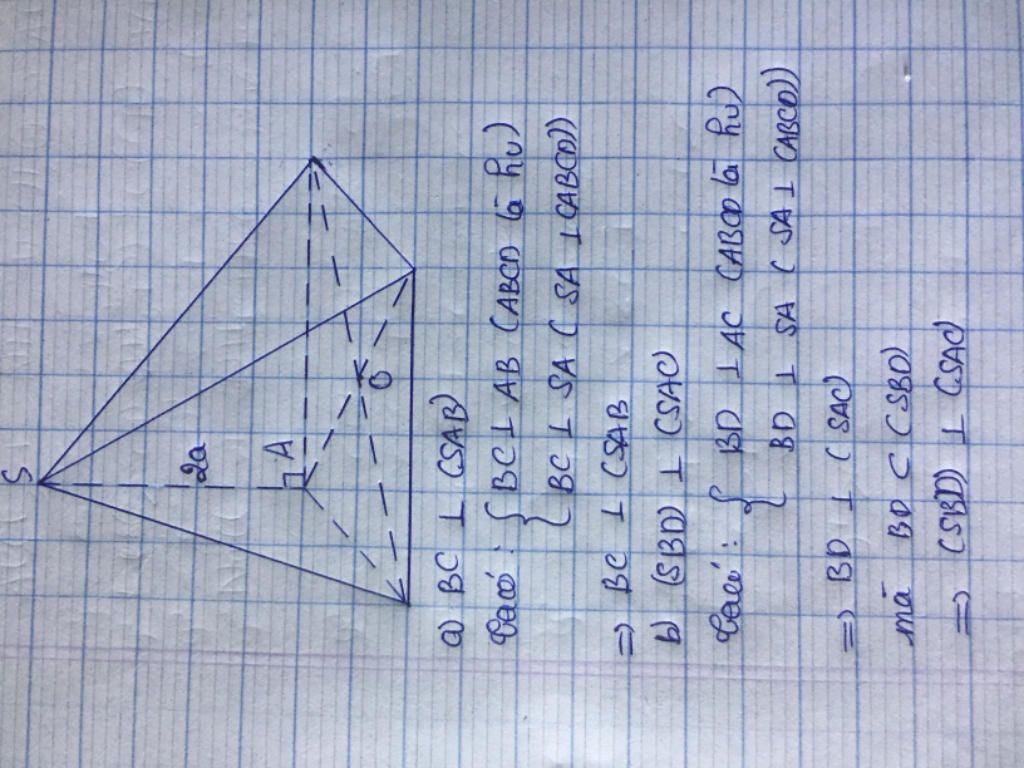 S
2a
A
O
a) BC ⊥ (SAB)
Ta có : { BC ⊥ AB (ABCD là hv)
BC ⊥ SA ( SA ⊥ (ABCD))
=> BC ⊥ (SAB
b) (SBD) ⊥ (SAC)
Ta có : { BD ⊥ AC (ABCD là hv)
BD ⊥ SA ( SA ⊥ (ABCD))
=> BD ⊥ ( SAC)
mà BD ⊂ (SBD)
=> (SBD) ⊥ (SAC)